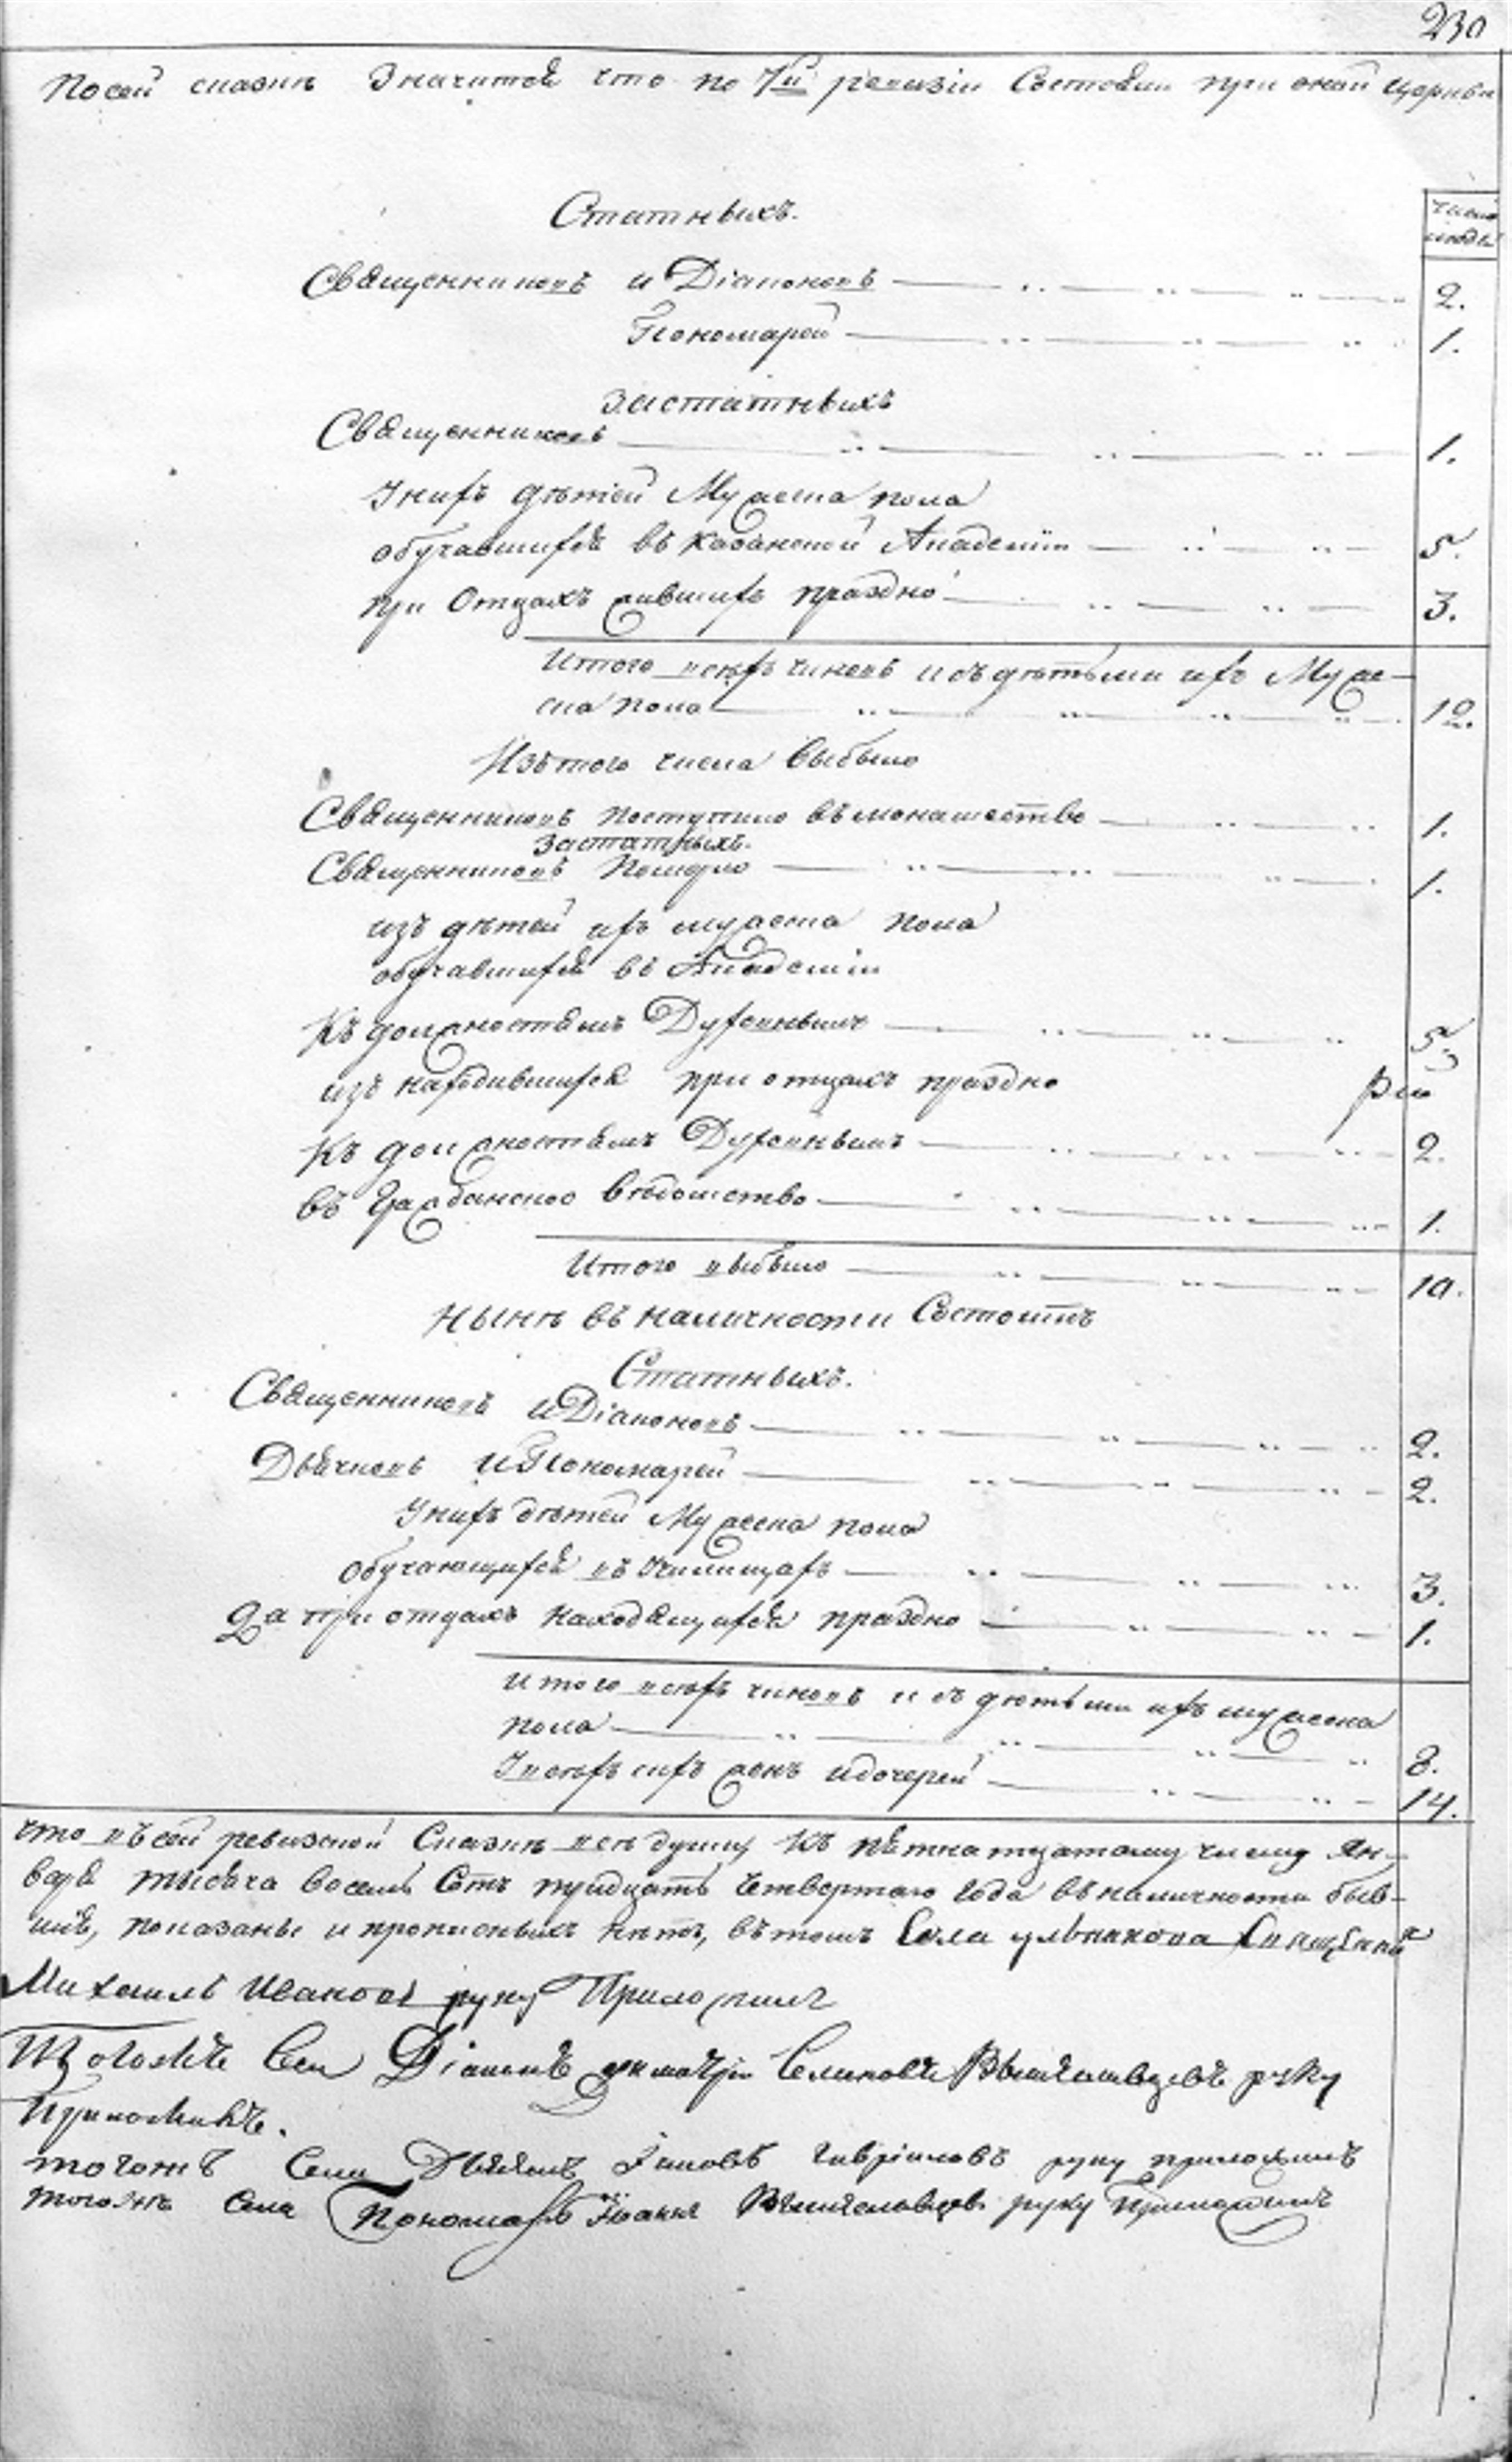 230
По сей сказкѣ Значится что по 7й ревизіи Состояли при оной Церкви
число людей
Статныхъ.
Священниковъ и Діаконовъ 2.
Пономарей 1.
Застатныхъ
Священниковъ 1.
У нихъ дѣтей Мужеска пола
обучавшихся въ казанской Академіи 5.
при Отцахъ жившихъ праздно 3.
Итого всѣхъ чиновъ и съ дѣтьми ихъ Муже-
ска пола 12.
Изъ того числа выбыло
Священниковъ поступило въ монашество 1.
Застатныхъ.
Священниковъ Померло 1.
изъ дѣтей ихъ мужеска пола
обучавшихся въ Академіи
Къ должностямъ Духовнымъ 5.
изъ находившихся при отцахъ праздно
Къ должностямъ Духовнымъ 2.
въ Гражданское вѣдомство 1.
Итого выбыло 10.
Нынѣ въ наличности Состоитъ
Статныхъ.
Священниковъ и Діаконовъ 2.
Дьячковъ и Пономарей 2.
У нихъ дѣтей Мужеска пола
Обучающихся въ Училищахъ 3.
Да при отцахъ находящихся праздно 1.
Итого всѣхъ чиновъ и съ дѣтьми ихъ мужеска
пола 8.
У всѣхъ сихъ женъ и дочерей 14.
что въ сей ревизской Сказкѣ всѣ души, къ пятнатцатому числу Ян-
варя тысяча восемь Сотъ тридцать Четвертаго Года въ наличности быв-
шія, показаны и прописныхъ нѣтъ, въ томъ Села Священникъ
Михаилъ Ивановъ руку Приложилъ
Тогожъ Села Діаконъ Димитрій Вышеславцевъ руку
Приложилъ.
тогожъ Села Дьячокъ Гавріловъ руку приложилъ
тогожъ Села Пономарь Іоаннъ Вышеславцовъ руку Приложилъ